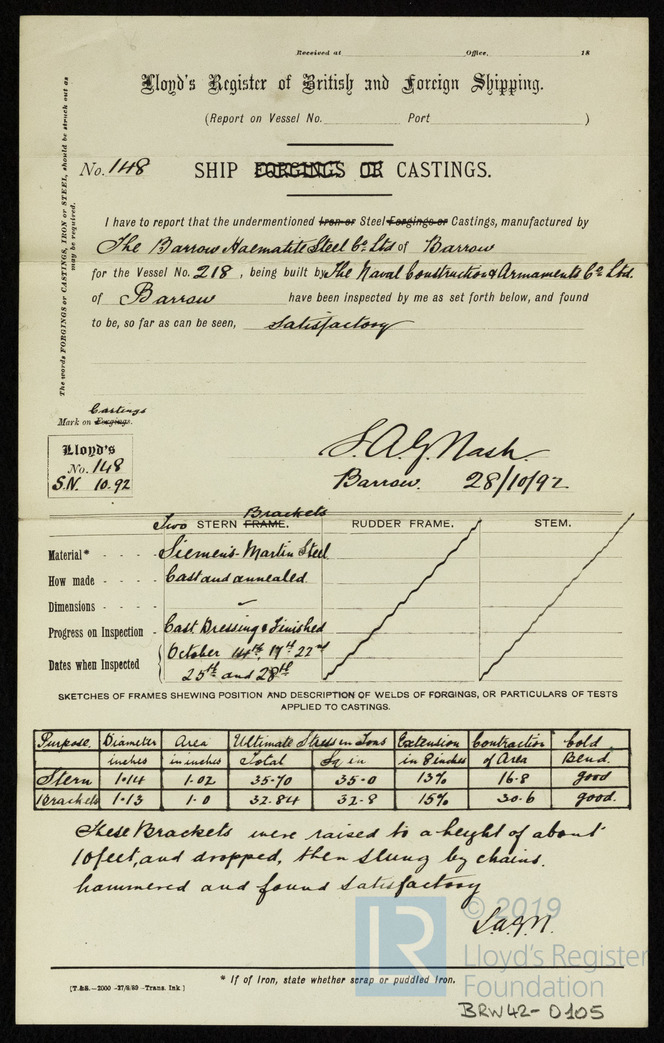 Received at Office, 18
Lloyd's Register of British and Foreign Shipping.
(Report on Vessel No. Port )
No. 148 SHIP FORGINGS OR CASTINGS.
The words FORGINGS or CASTINGS, IRON or STEEL, should be struck out as
may be required.
I have to report that the undermentioned Iron or Steel Forgings or Castings, manufactured by
The Barrow Haematite Steel Co. Ltd of Barrow
for the Vessel No. 218, being built by The Naval Construction & Armaments Co. Ltd.
of Barrow have been inspected by me as set forth below, and found
to be, so far as can be seen, Satisfactory
Castings
Mark on Forgings.
Lloyd's
No. 148
S.N. 10.92
S.A.G. Nash.
Barrow. 28/10/92
Brackets
Two STERN FRAME. RUDDER FRAME. STEM.
Material* - - - - Siemens-Martin Steel
How made - - - - Cast and annealed.
Dimensions - - - -
Progress on Inspection - Cast Dressing & Finished
Dates when Inspected October 14th, 17th 22nd
25th and 28th
SKETCHES OF FRAMES SHEWING POSITION AND DESCRIPTION OF WELDS OF FORGINGS, OR PARTICULARS OF TESTS
APPLIED TO CASTINGS.
Purpose. Diameter Area Ultimate Stress in Tons Extension Contraction Cold
inches in inches Total Sq in in 8 inches of Area Bend.
Stern 1.14 1.02 35.70 35.0 13% 16.8 good
Brackets 1.13 1.0 32.84 32.8 15% 30.6 good.
These Brackets were raised to a height of about
10 feet, and dropped, then slung by chains.
hammered and found satisfactory
S.A.G.N.
© 2019
LR Lloyd's Register
Foundation
* If of Iron, state whether scrap or puddled Iron.
[T.&S.—2000 -27/8/89 -Trans. Ink.]
BRW42-0105